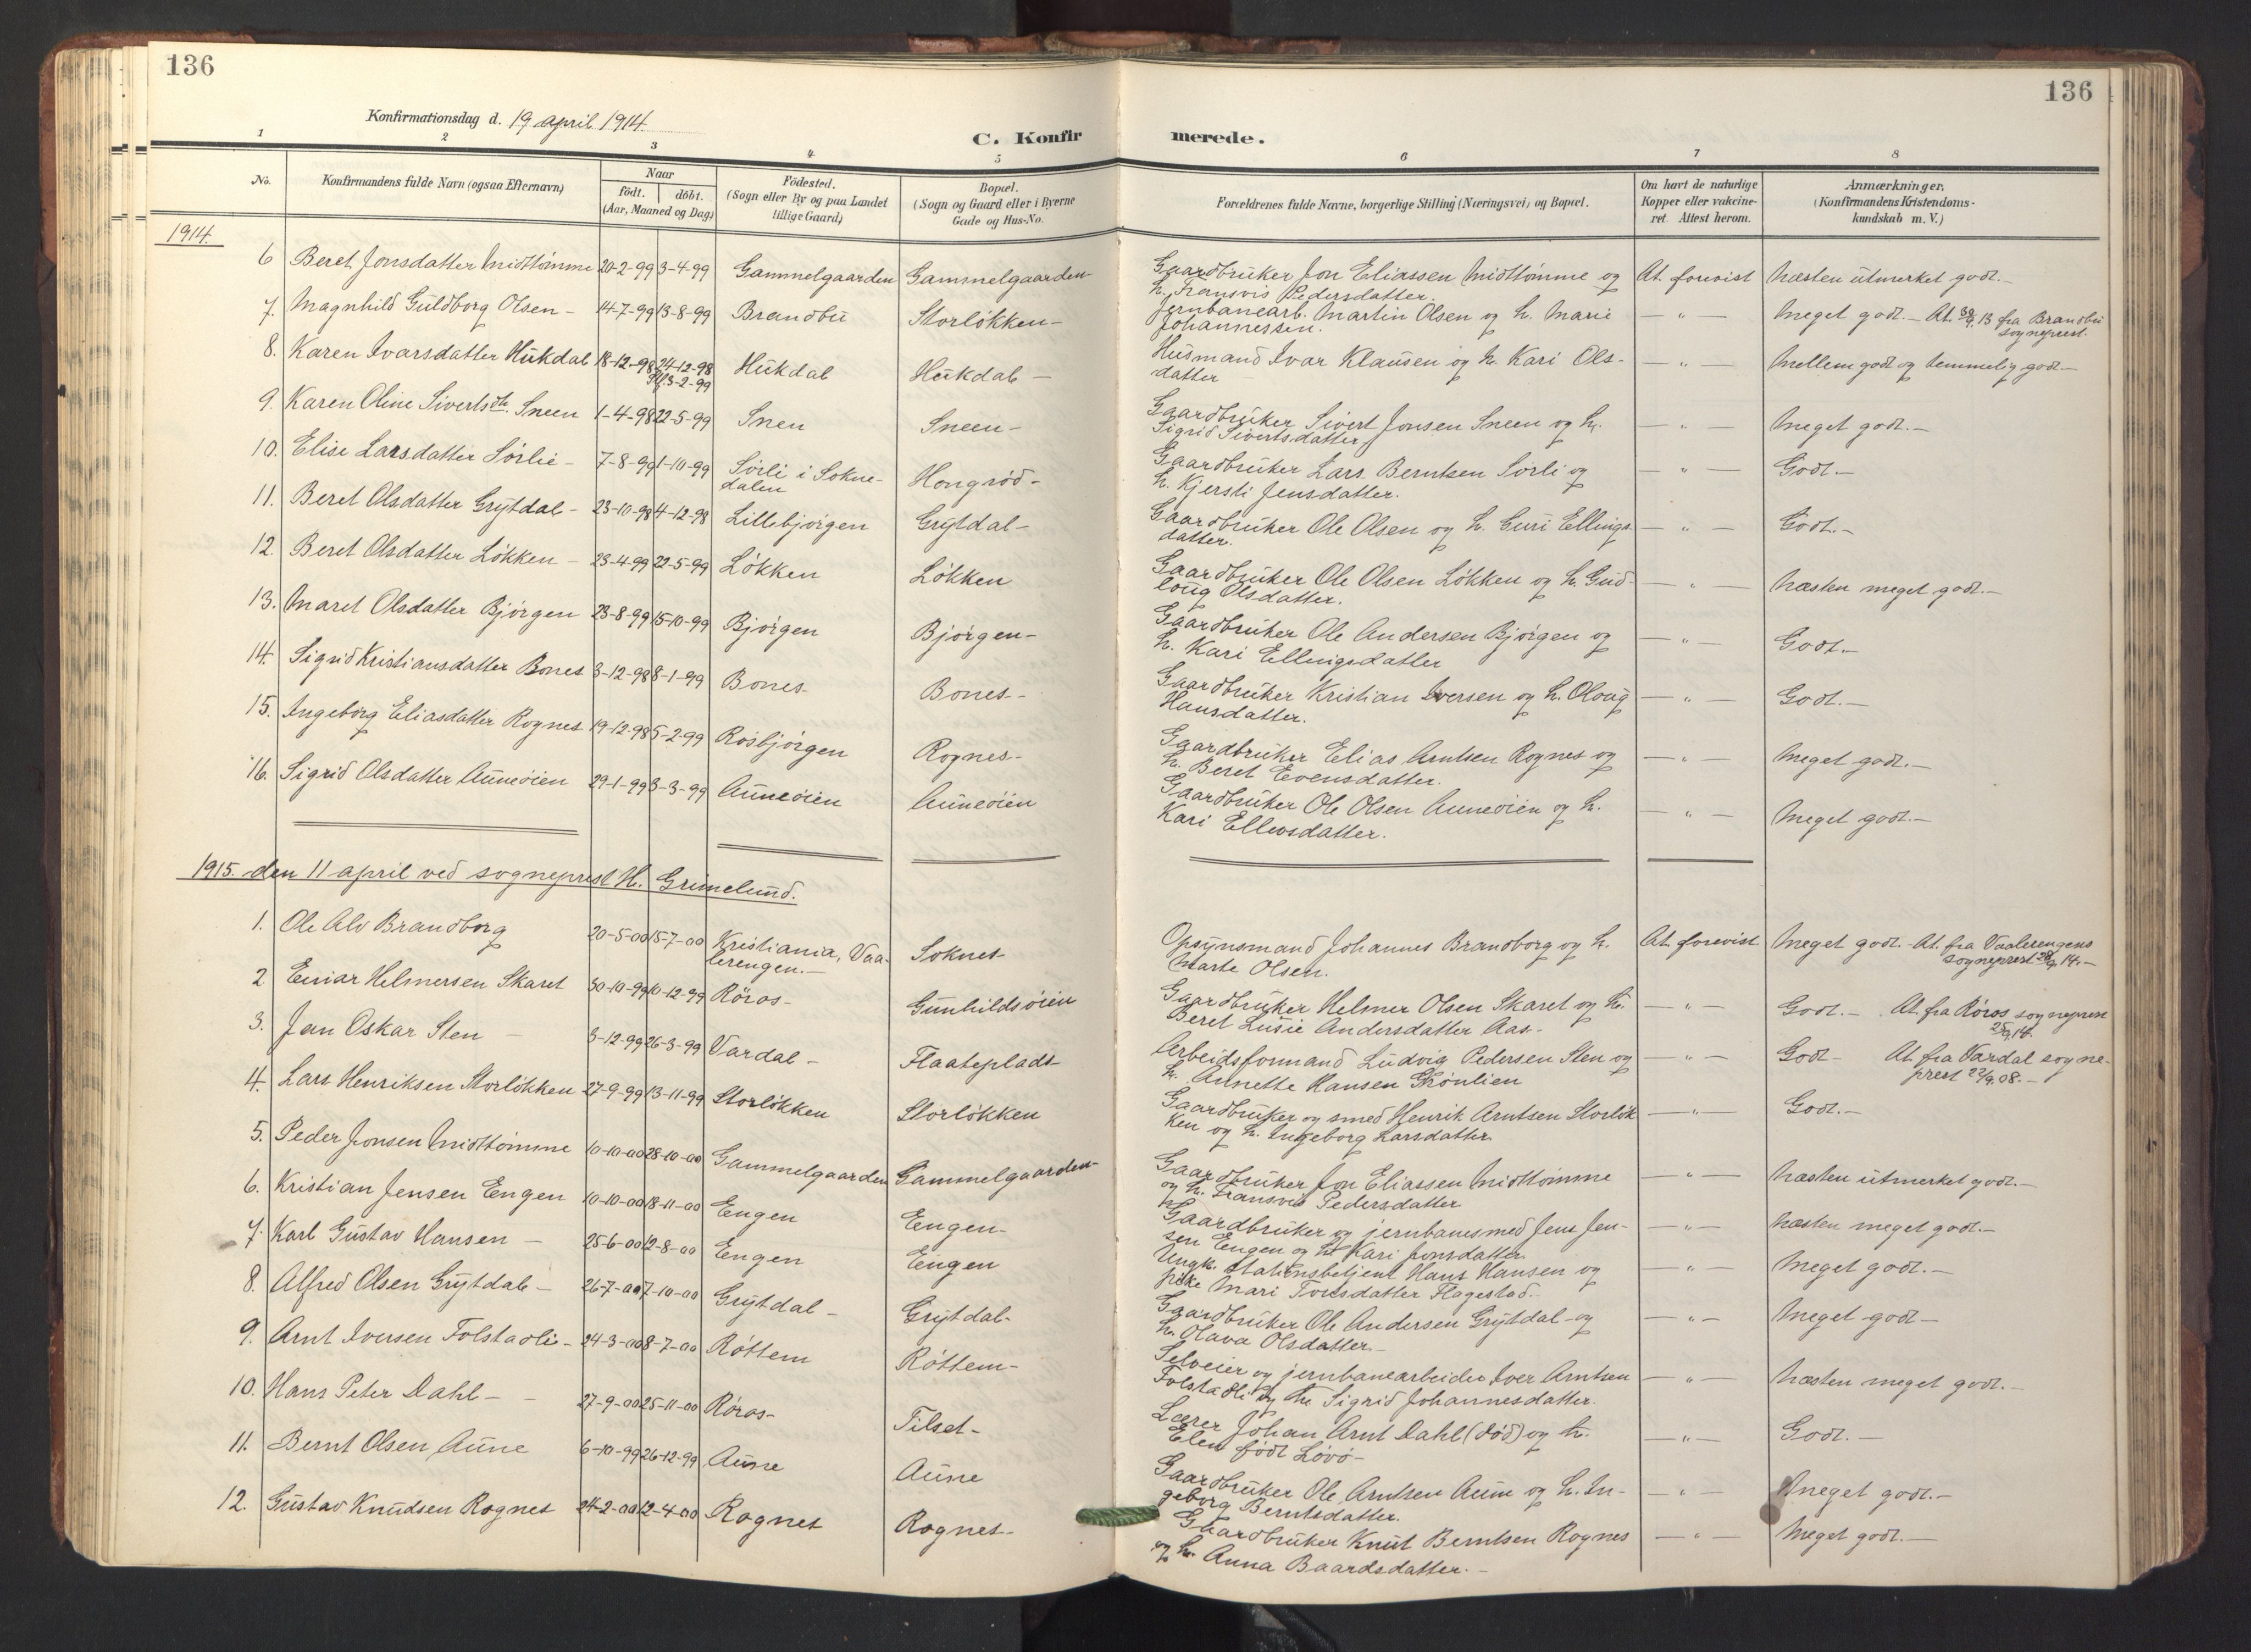 136
136
Konfirmationsdag d. 19 april 1914.
C. Konfir merede.
1 2 3 4 5 6 7 8
No. Konfirmandens fulde Navn (ogsaa Efternavn) Naar født. døbt. (Aar, Maaned og Dag) Födested. (Sogn eller By og paa Landet tillige Gaard) Bopæl. (Sogn og Gaard eller i Byerne Gade og Hus-No. Forældrenes fulde Navne, borgerlige Stilling (Næringsvei) og Bopæl. Om havt de naturlige Kopper eller vakcineret. Attest herom. Anmærkninger. (Konfirmandens Kristendomskundskab m. V.)
1914.
6 Beret Jonsdatter Midttømme 20-2-99 3-4-99 Gammelgaarden Gammelgaarden Gaardbruker Jon Eliassen Midttømme og
h. Fransvis Pedersdatter. At. forevist Næsten utmerket godt.-
7. Magnhild Guldborg Olsen - 14-7-99 13-8-99 Brandbu Storløkken- Jernbanearb. Martin Olsen og h. Marie
Johannessen. — " — Meget godt.- At. 13 fra Brandbu
sogneprest.
8. Karen Ivarsdatter Hukdal 18-12-98 24-12-98
3-2-99 Hukdal Hukdal — Husmand Ivar Klausen og h. Kari Ols-
datter — " — Mellem godt og temmelig godt.—
9. Karen Oline Sivertsdtr. Sneen 1-4-98 22-5-99 Snen Sneen- Gaardbruker Sivert Jonsen Sneen og h.
Sigrid Sivertsdatter — " — Meget godt.-
10. Elise Larsdatter Sørlie - 7-8-99 1-10-99 Sørli i Sokne-
dalen Hongrød- Gaardbruker Lars Berntsen Sørli og
h. Kjersti Jensdatter. — " — Godt.-
11. Beret Olsdatter Grytdal - 23-10-98 4-12-98 Lillebjørgen Grytdal- Gaardbruker Ole Olsen og h. Guri Ellings-
datter. — " — Godt.-
12. Beret Olsdatter Løkken - 23-4-99 22-5-99 Løkken Løkken Gaardbruker Ole Olsen Løkken og h. Gud-
loug Olsdatter. — " — Næsten meget godt.-
13. Maret Olsdatter Bjørgen 23-8-99 15-10-99 Bjørgen Bjørgen- Gaardbruker Ole Andersen Bjørgen og
h. Kari Ellingsdatter — " — Godt.-
14. Sigrid Kristiansdatter Bones 3-12-98 8-1-99 Bones Bones- Gaardbruker Kristian Iversen og h. Oloug
Hansdatter. — " — Godt.-
15. Ingeborg Eliasdatter Rognes 19-12-98 5-2-99 Rosbjørgen Rognes- Gaardbruker Elias Arntsen Rognes og
h. Beret Evensdatter. — " — Meget godt.-
16. Sigrid Olsdatter Auneøien 29-1-99 3-3-99 Auneøien Auneøien Gaardbruker Ole Olsen Auneøien og h.
Kari Ellevsdatter. — " — Meget godt.-
1915. den 11 april ved sogneprest H. Grimelund.
1. Ole Alv Brandborg 20-5-00 15-7-00 Kristiania, Vaa-
lerengen.- Soknes Opsynsmand Johannes Brandborg og h.
Marte Olsen. At. forevist Meget godt.- At. fra Vaalerengens
sogneprest 14.-
2 Einar Helmersen Skaret 30-10-99 10-12-99 Røros- Gunhildsøien Gaardbruker Helmer Olsen Skaret og h.
Beret Lusie Andersdatter Aas.- — " — Godt.- At. fra Røros sogneprest
14.
3. Jan Oskar Sten — 3-12-99 26-3-99 Vardal- Flaateplads Arbeidsformand Ludvig Pedersen Sten og
h. Annette Hansen Grønlien — " — Godt- At. fra Vardal sogne-
prest 22/9.08.-
4. Lars Henriksen Storløkken 27-9-99 13-11-99 Storløkken Storløkken Gaardbruker og smed Henrik Arntsen Storløk
ken og h. Ingeborg Larsdatter. — " — Godt.-
5. Peder Jonsen Midttømme 10-10-00 28-10-00 Gammelgaarden Gammelgaarden- Gaardbruker Jon Eliassen Midttømme
og h. Fransvis Pedersdatter — " — Næsten utmerket godt.-
6. Kristian Jensen Engen 10-10-00 18-11-00 Engen Engen- Gaardbruker og jernbanesmed Jens Jen-
sen Engen og h. Kari Jonsdatter. — " — Næsten meget godt.-
7. Karl Gustav Hansen — 25-6-00 12-8-00 Engen Engen Ungk. stationsbetjent Hans Hansen og
pike Mari Flagestad.- — " — Meget godt.-
8. Alfred Olsen Grytdal- 26-7-00 7-10-00 Grytdal- Grytdal- Gaardbruker Ole Andersen Grytdal og
h. Olava Olsdatter.- — " — Meget godt-
9. Arnt Iversen Folstadli- 24-3-00 8-7-00 Røttem Røttem- Selveier og jernbanearbeider Iver Arntsen
Folstadli og h. Sigrid Johannesdatter. — " — Næsten meget godt.-
10. Hans Peter Dahl- 27-9-00 25-11-00 Røros- Tilset- Lærer Johan Arnt Dahl (død) og h.
Elen født Løvø- — " — Godt.-
11. Bernt Olsen Aune 6-10-99 26-12-99 Aune Aune Gaardbruker Ole Arntsen Aune og h. In-
geborg Berntsdatter. — " — Meget godt.-
12. Gustav Knudsen Rognes 24-2-00 12-4-00 Rognes Rognes- Gaardbruker Knut Berntsen Rognes
og h. Anna Baardsdatter.- — " — Meget godt.-